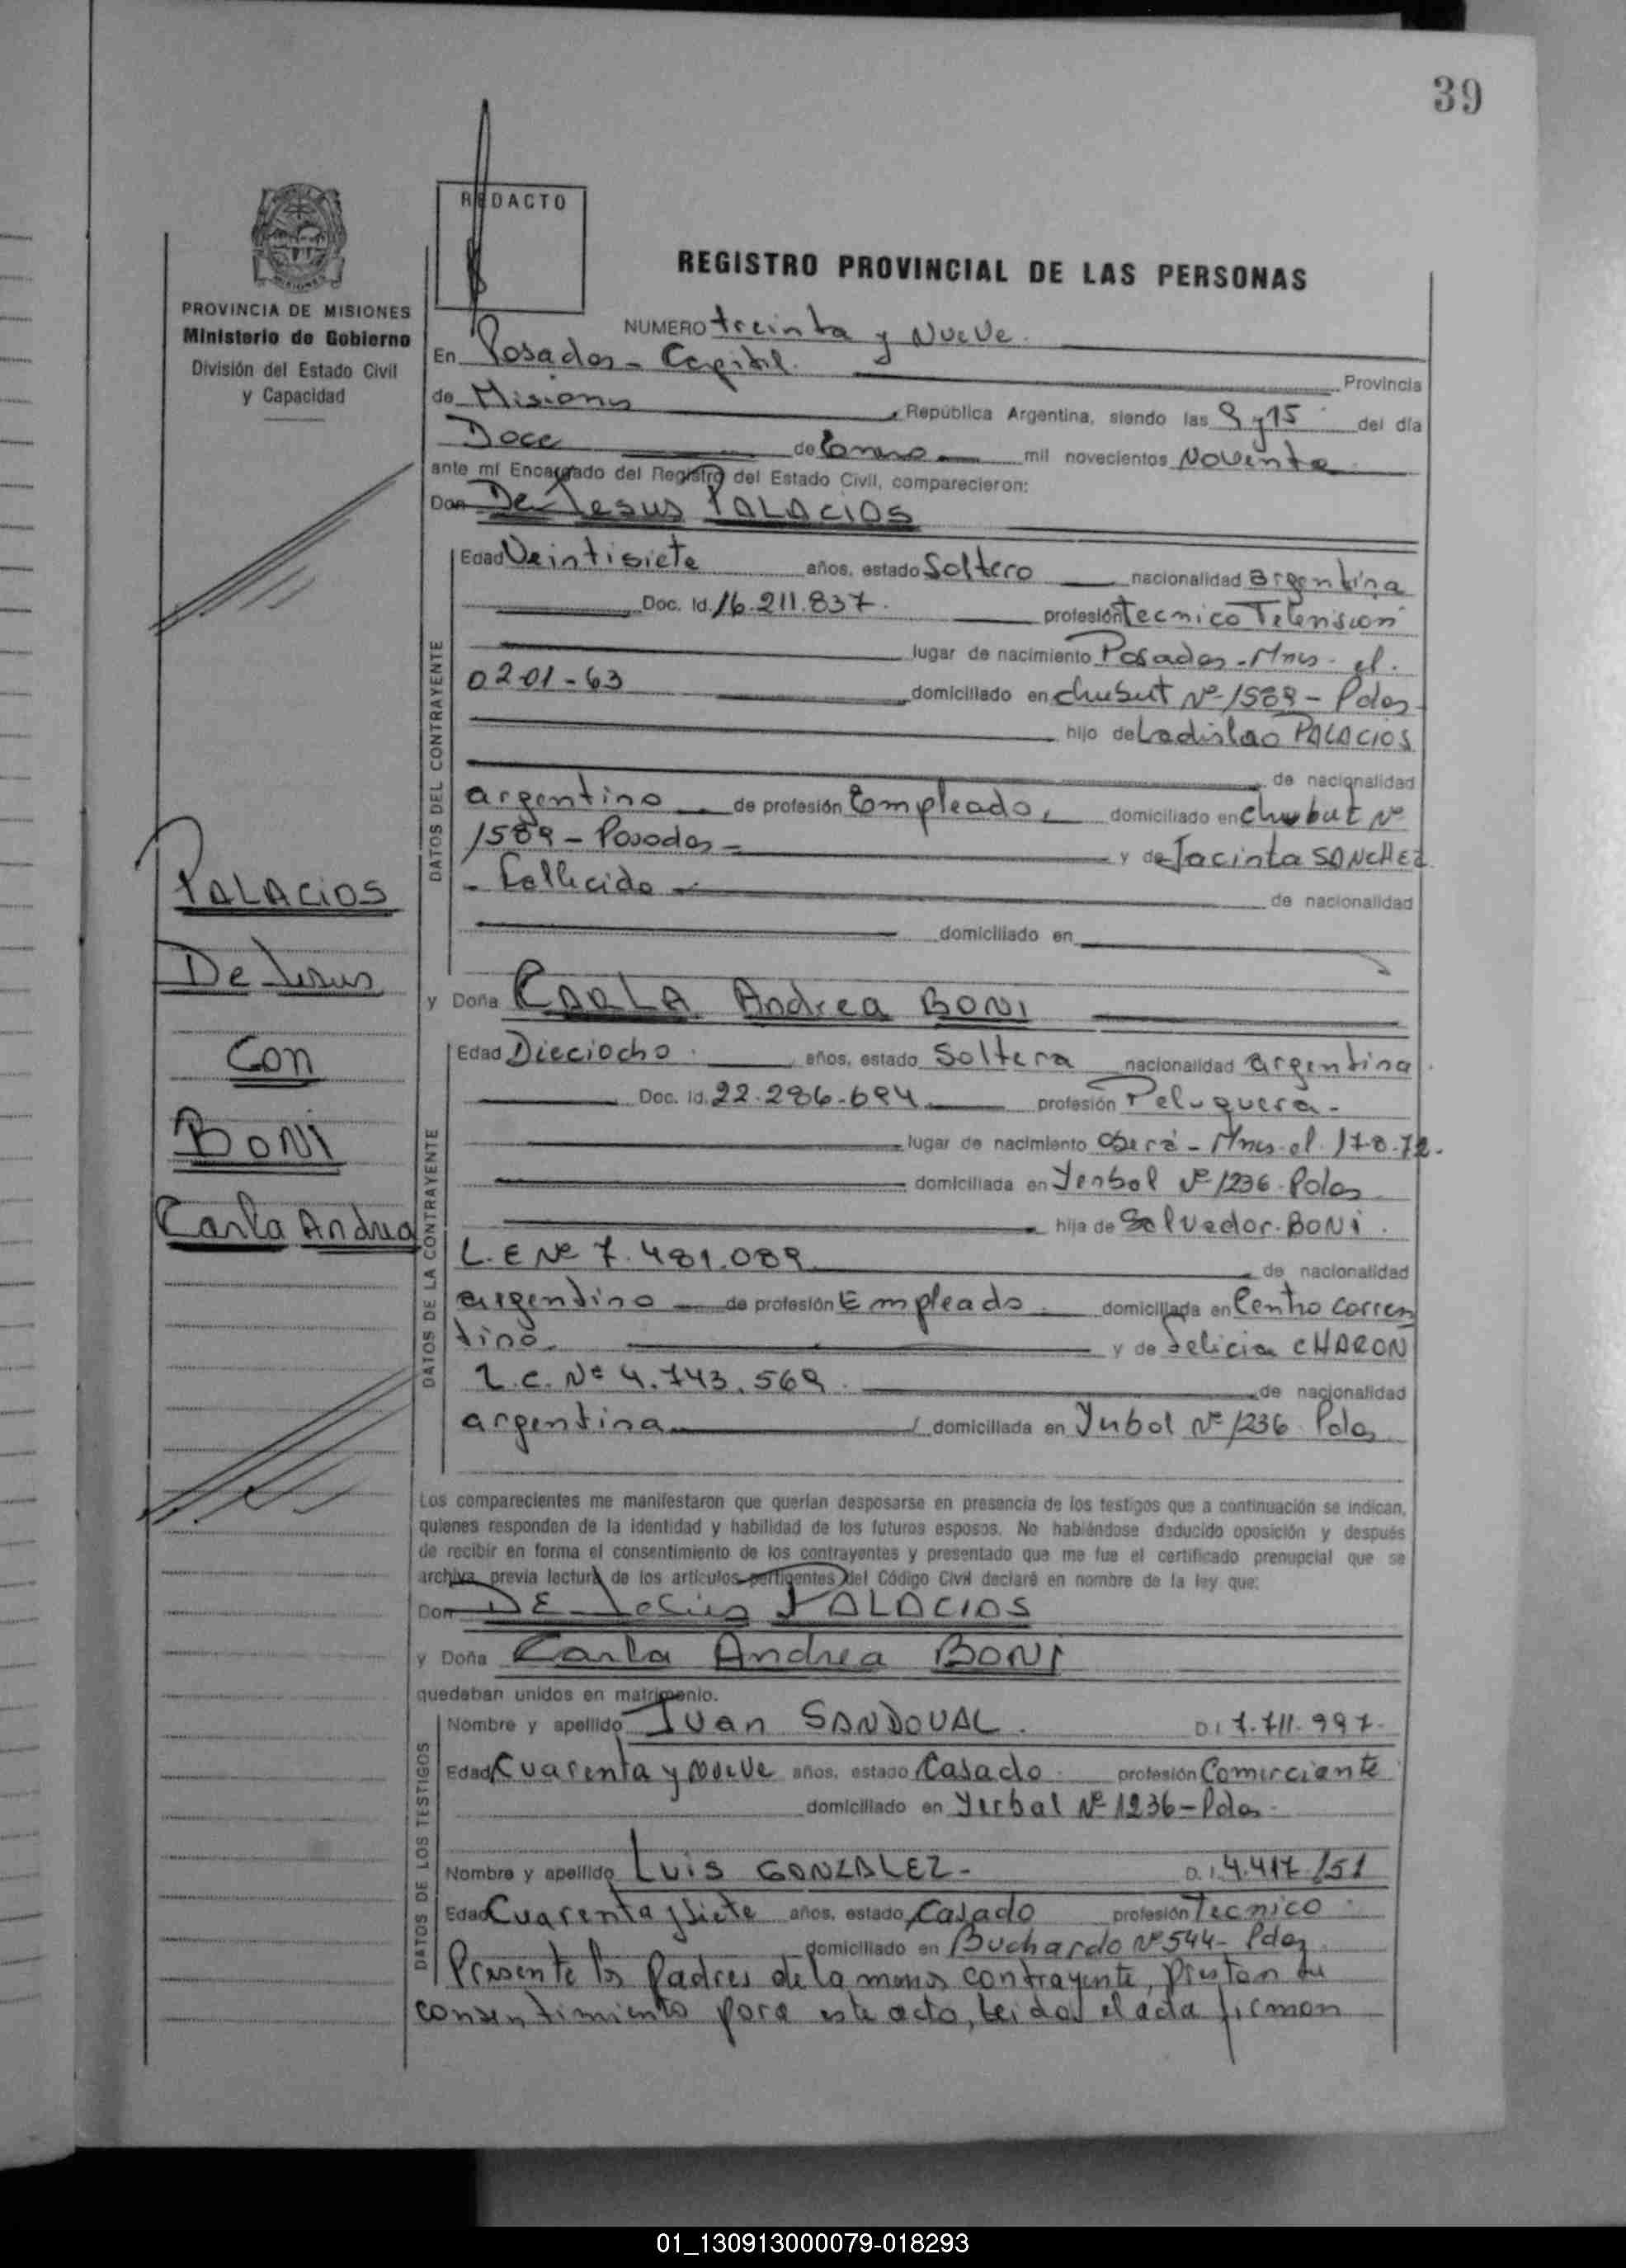 39
REDACTO
REGISTRO PROVINCIAL DE LAS PERSONAS
PROVINCIA DE MISIONES
Ministerio de Gobierno
División del Estado Civil
y Capacidad
NUMERO treinta y Nueve.
En Posadas - Capital. Provincia
de Misiones República Argentina, siendo las 9 y 15 del día
Doce de Enero mil novecientos Noventa
ante mí Encargado del Registro del Estado Civil, comparecieron:
Don De Jesus PALACIOS
DATOS DEL CONTRAYENTE
Edad Veintisiete años, estado Soltero nacionalidad argentina
Doc. Id. 16.211.837. profesión tecnico Television
lugar de nacimiento Posadas - Mnes - el.
02-01-63 domiciliado en chubut Nº 1589 - Pdas
hijo de Ladislao PALACIOS
de nacionalidad
argentino de profesión Empleado, domiciliado en chubut Nº
1589 - Posadas - y de Jacinta SANCHEZ
- Fallecida - de nacionalidad
domiciliado en
PALACIOS
De Jesus
Con
BONI
Carla Andrea
y Doña CARLA Andrea BONI
DATOS DE LA CONTRAYENTE
Edad Dieciocho. años, estado Soltera nacionalidad argentina.
Doc. Id. 22.286.694 profesión Peluquera -
lugar de nacimiento Oberá - Mnes - el 17-8-72.
domiciliada en Yerbal Nº 1236 - Pdas
hija de Salvador BONI.
L.E Nº 7.481.089 de nacionalidad
argentino de profesión Empleado. domiciliada en Centro Corren
tino y de Felicia CHARON
L.C. Nº 4.743.569. de nacionalidad
argentina domiciliada en Yerbal Nº 1236 Pdas
Los comparecientes me manifestaron que querían desposarse en presencia de los testigos que a continuación se indican,
quienes responden de la identidad y habilidad de los futuros esposos. No habiéndose deducido oposición y después
de recibir en forma el consentimiento de los contrayentes y presentado que me fue el certificado prenupcial que se
archiva previa lectura de los artículos pertinentes del Código Civil declaré en nombre de la ley que:
Don DE Jesus PALACIOS
y Doña Carla Andrea BONI
quedaban unidos en matrimonio.
DATOS DE LOS TESTIGOS
Nombre y apellido Juan SANDOVAL. D.I 7.711.997.
Edad Cuarenta y Nueve años, estado Casado. profesión Comerciante
domiciliado en Yerbal Nº 1236 - Pdas -
Nombre y apellido Luis GONZALEZ - D.I. 4.417.151
Edad Cuarenta y Siete años, estado Casado profesión Tecnico
domiciliado en Buchardo Nº 544 - Pdas
Presente los Padres de la menor contrayente, prestan su
consentimiento para este acto, leida el acta firman
01_130913000079-018293